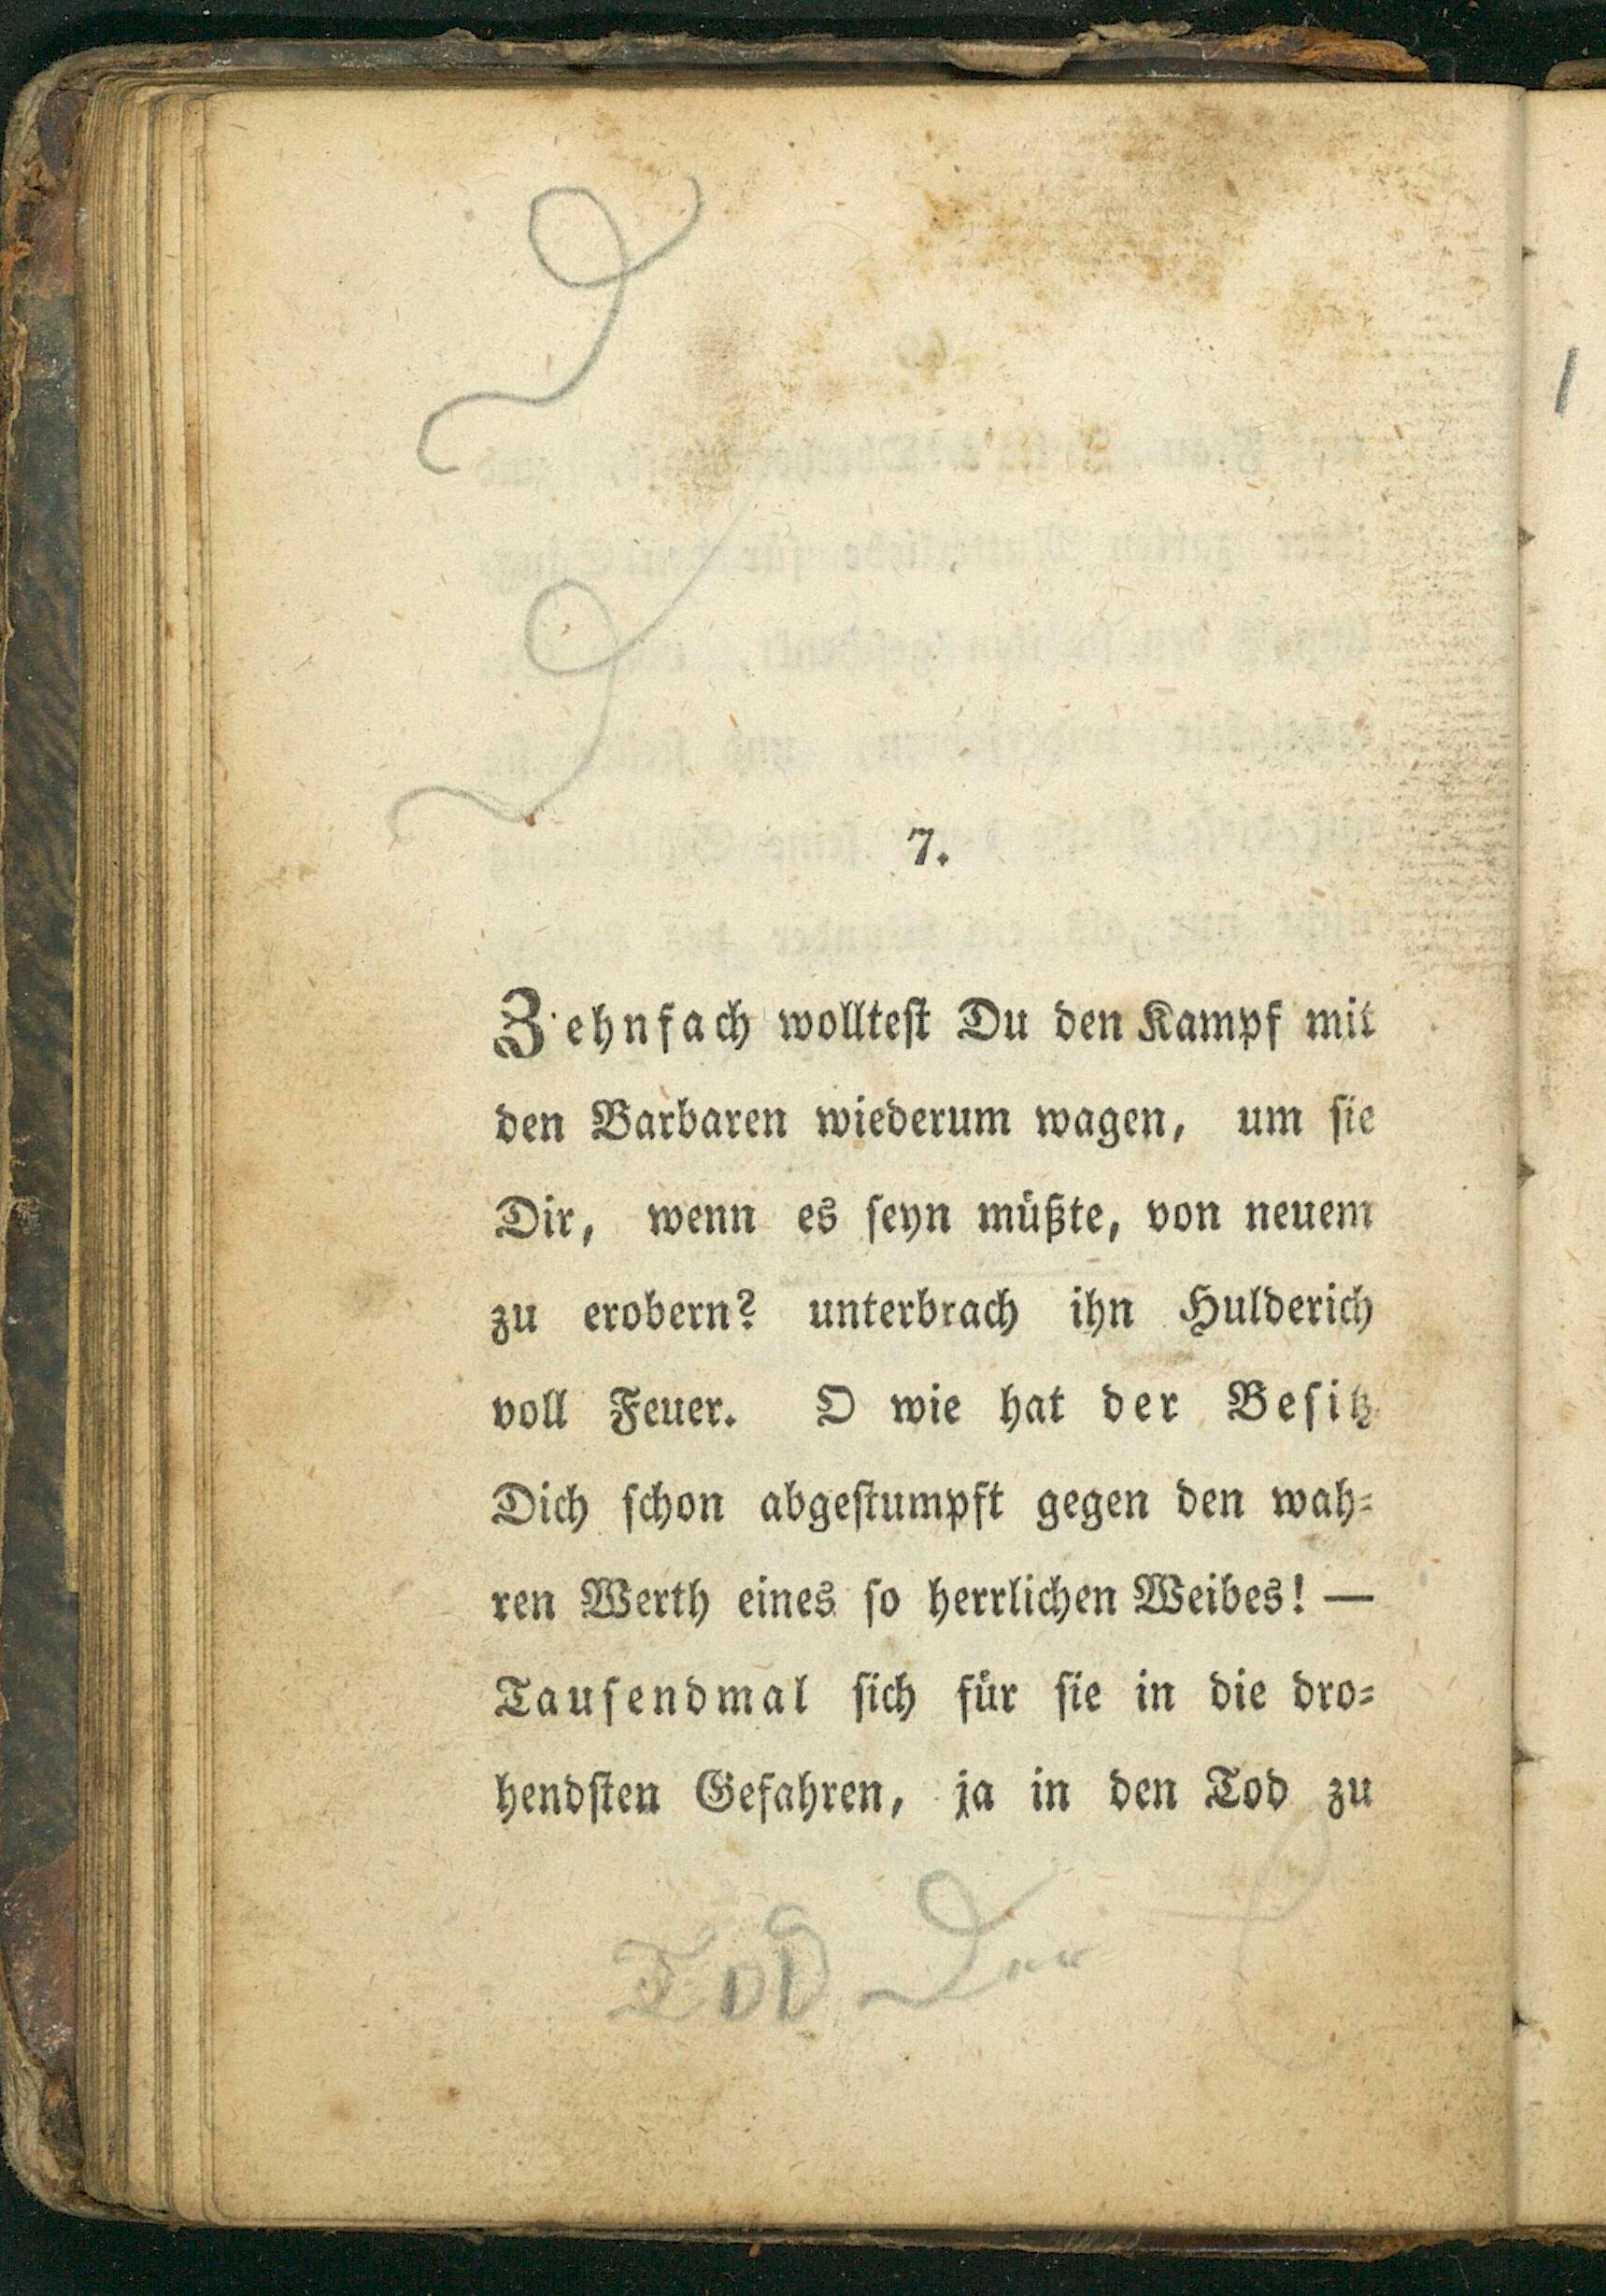 7.
Zehnfach wolltest Du den Kampf mit
den Barbaren wiederum wagen, um sie
Dir, wenn es seyn müßte, von neuem
zu erobern? unterbrach ihn Hulderich
voll Feuer. O wie hat der Besitz
Dich schon abgestumpft gegen den wah-
ren Werth eines so herrlichen Weibes! —
Tausendmal sich für sie in die dro-
hendsten Gefahren, ja in den Tod zu
Tod